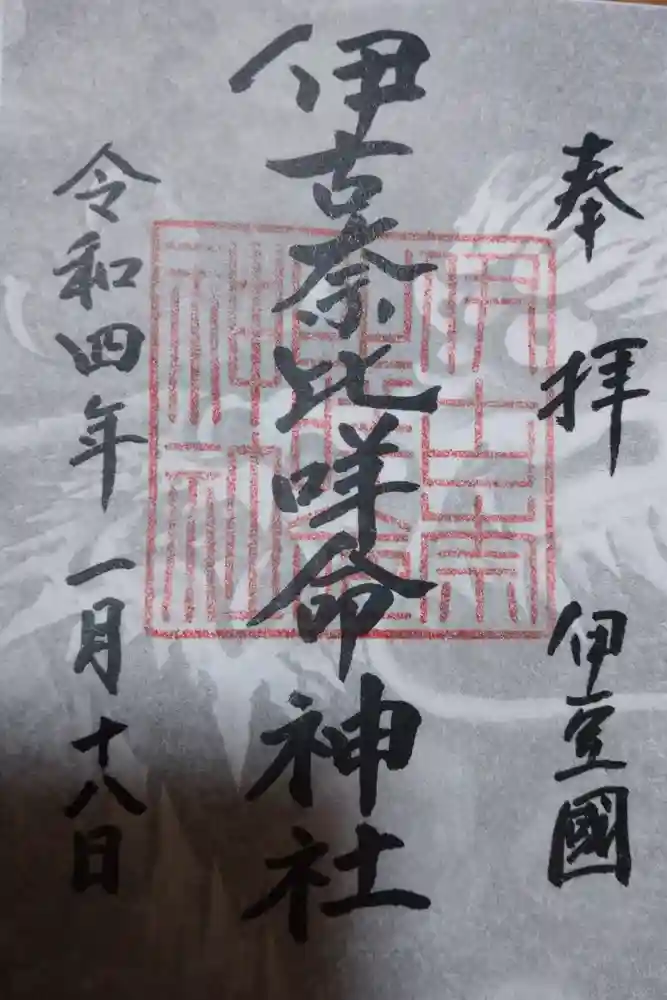 奉拝 伊豆國
伊古奈比咩命神社
令和四年一月十八日